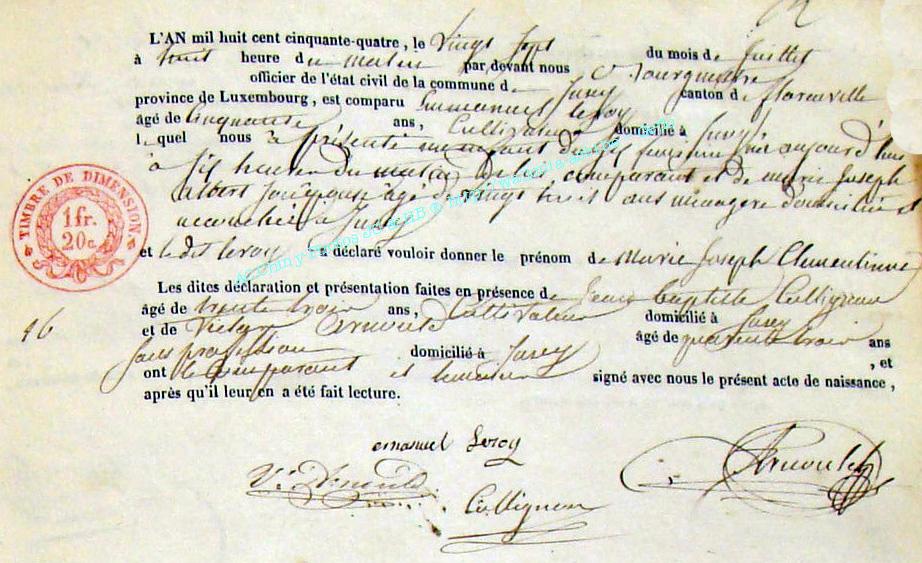 L'AN mil huit cent cinquante-quatre, le Vingt Sept du mois de Juillet
à huit heure du matin par devant nous
officier de l'état civil de la commune de Jamoigne canton de Florenville
province de Luxembourg, est comparu Emmanuel leroy
âgé de Cinquante ans, Cultivateur domicilié à
lequel nous a présenté un enfant du sexe feminin née aujourd'hui
à six heures du matin de lui comparant et de marie Joseph
albert son épouse âgé de vingt huit ans menagere domiciliée
accouchée à
et le dit leroy a déclaré vouloir donner le prénom de Marie Joseph Clementinne
Les dites déclaration et présentation faites en présence de Jean baptiste Collignon
âgé de trente trois ans, Cultivateur domicilié à
46. et de Victor Arnould âgé de quarante trois ans
sans profession domicilié à , et
ont le comparant et temoins signé avec nous le présent acte de naissance,
après qu'il leur en a été fait lecture.
TIMBRE DE DIMENSION
1 fr.
20 c.
emanuel Leroy
V. Arnould
Collignon